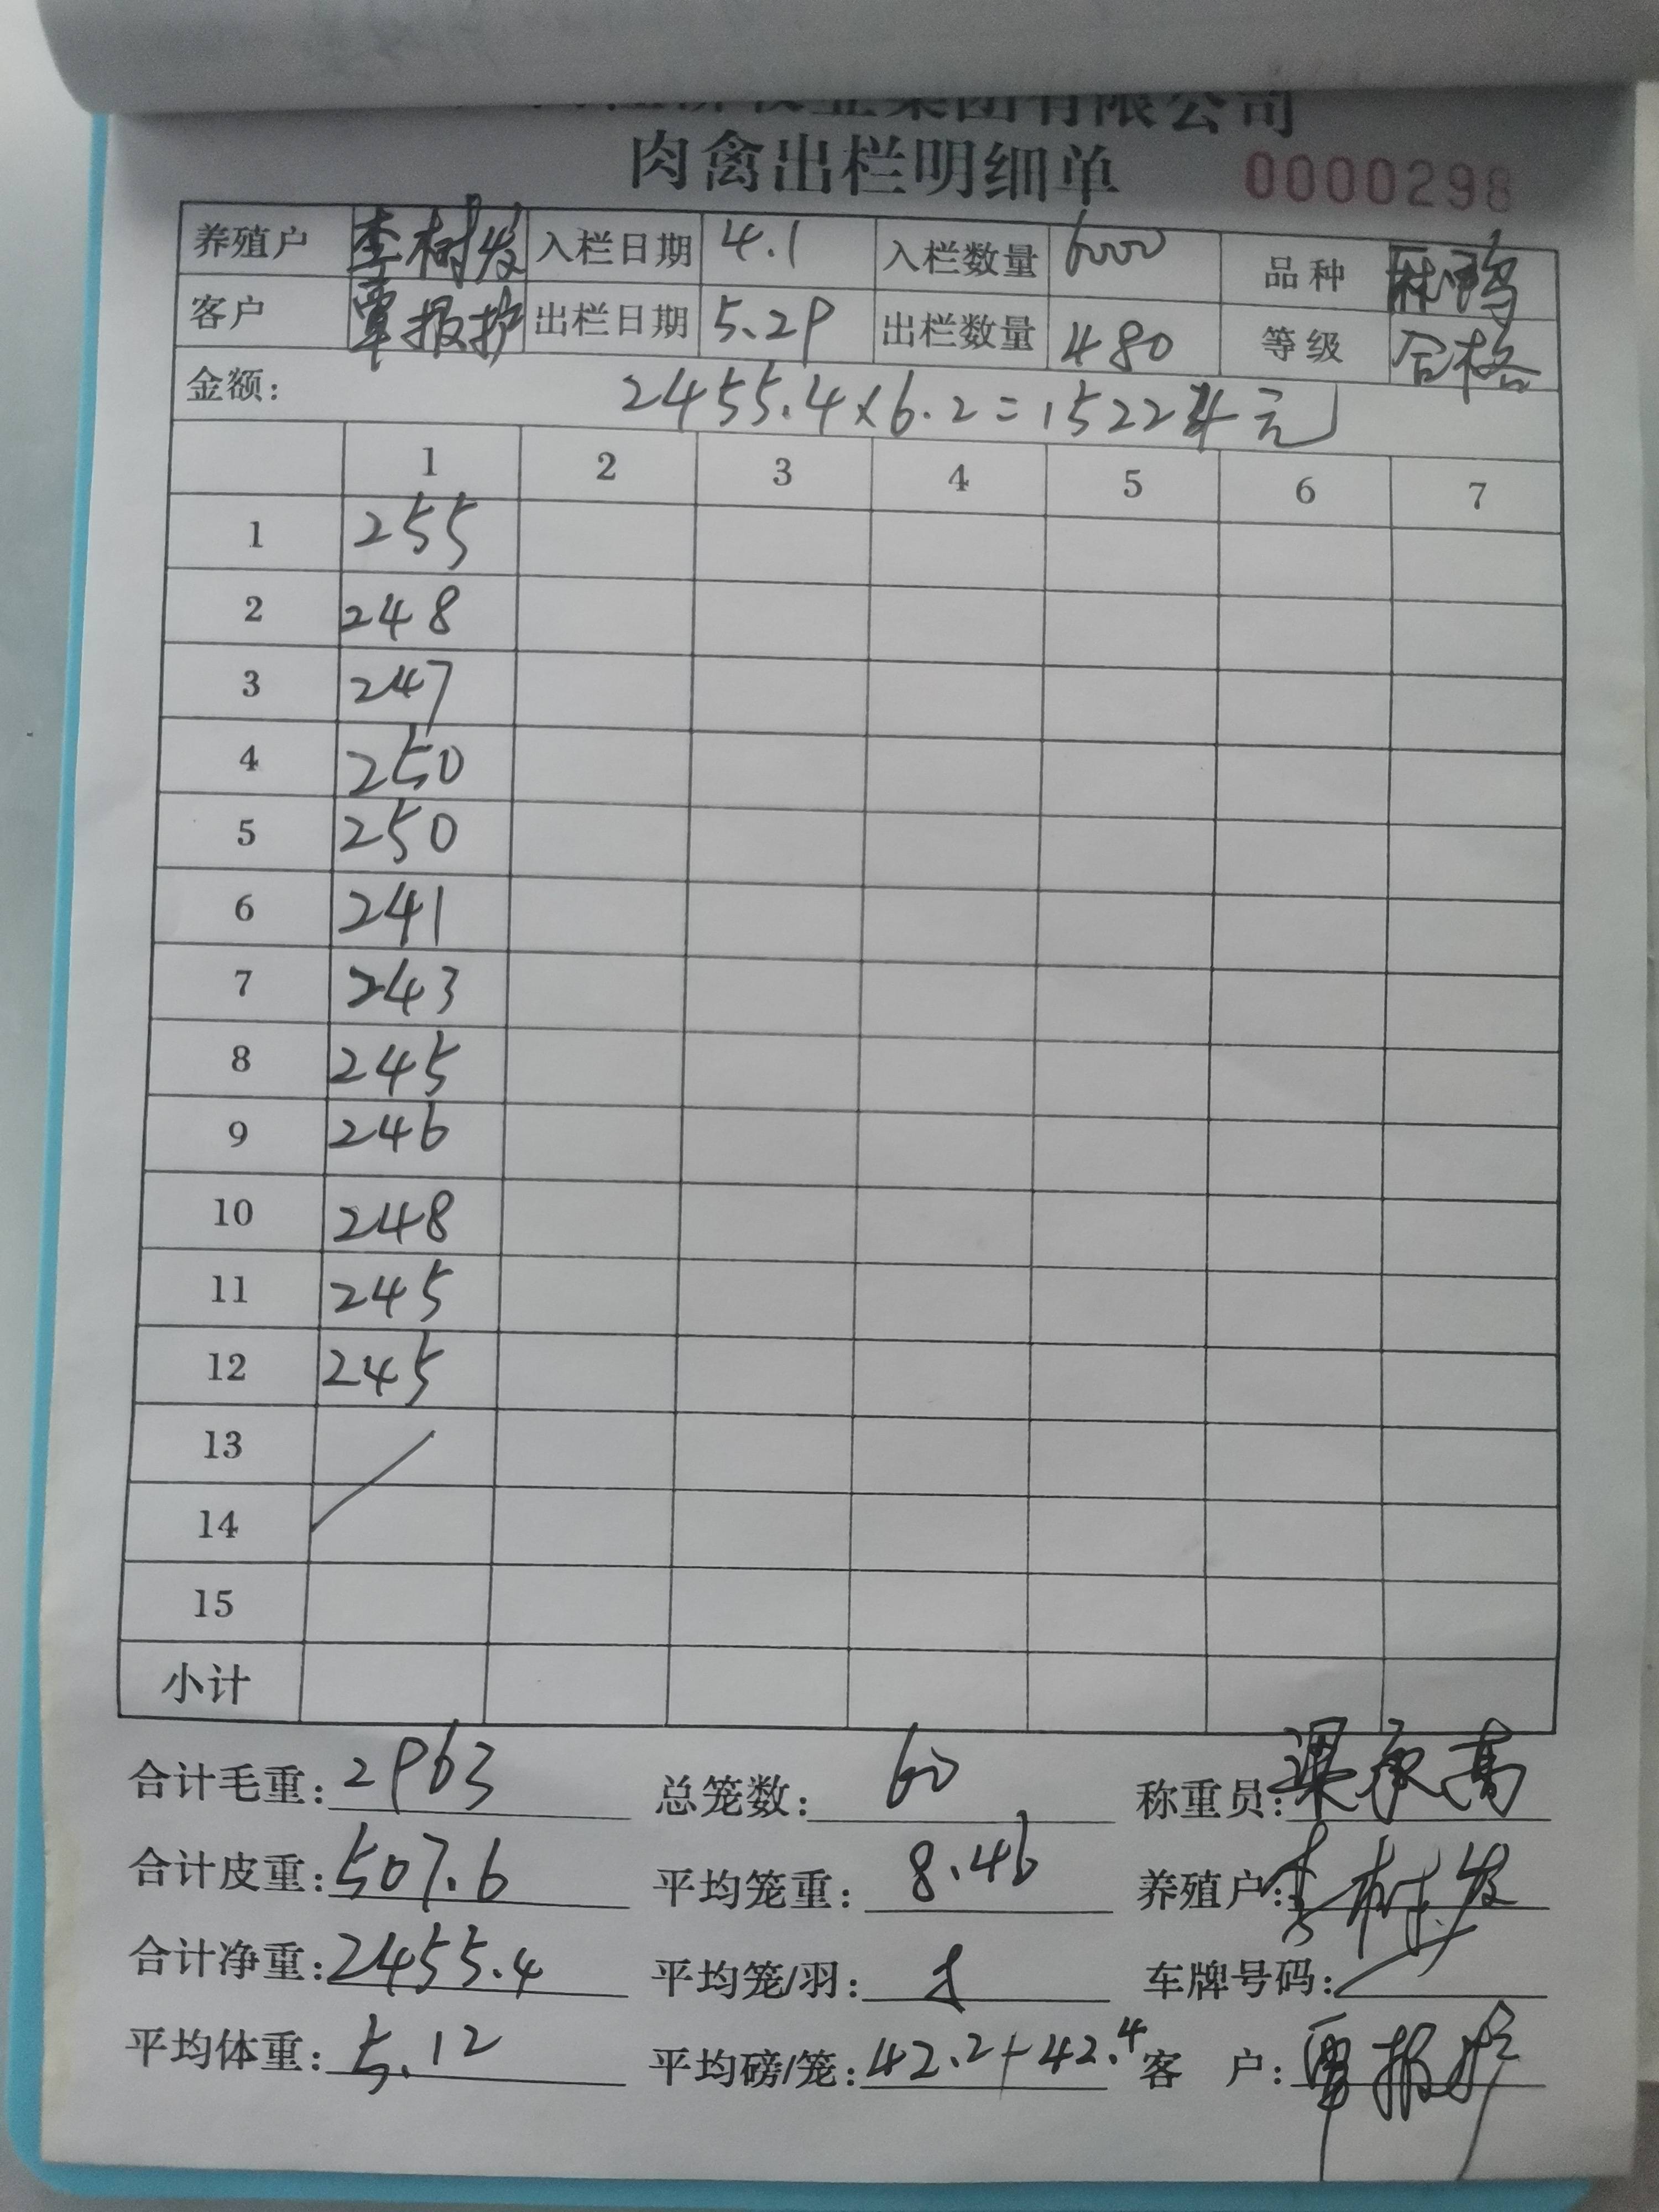 集团有限公司
肉禽出栏明细单 0000298
养殖户 李树发 入栏日期 4.1 入栏数量 6000 品种 麻鸭
客户 覃报护 出栏日期 5.29 出栏数量 480 等级 合格
金额: 2455.4×6.2=15224元
1 2 3 4 5 6 7
1 255
2 248
3 247
4 250
5 250
6 241
7 243
8 245
9 246
10 248
11 245
12 245
13
14
15
小计
合计毛重: 2963 总笼数: 60 称重员: 梁承高
合计皮重: 507.6 平均笼重: 8.46 养殖户: 李树发
合计净重: 2455.4 平均笼/羽: 8 车牌号码:
平均体重: 5.12 平均磅/笼: 42.2+42.4 客 户: 覃报护